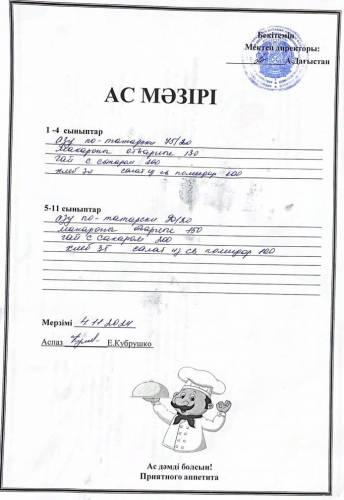 Бекітемін
Мектеп директоры:
А.Дағыстан
АС МӘЗІРІ
1 -4 сыныптар
Азу по-татарски 75/20
Макароны отварные 130
Чай с сахаром 200
хлеб 30 салат из св помидор 100
5-11 сыныптар
Азу по-татарски 90/20
Макароны отварные 150
Чай с сахаром 200
хлеб 35 салат из св помидор 100
Мерзімі 4.11.2024
Аспаз Е.Кубрушко
Ас дәмді болсын!
Приятного аппетита